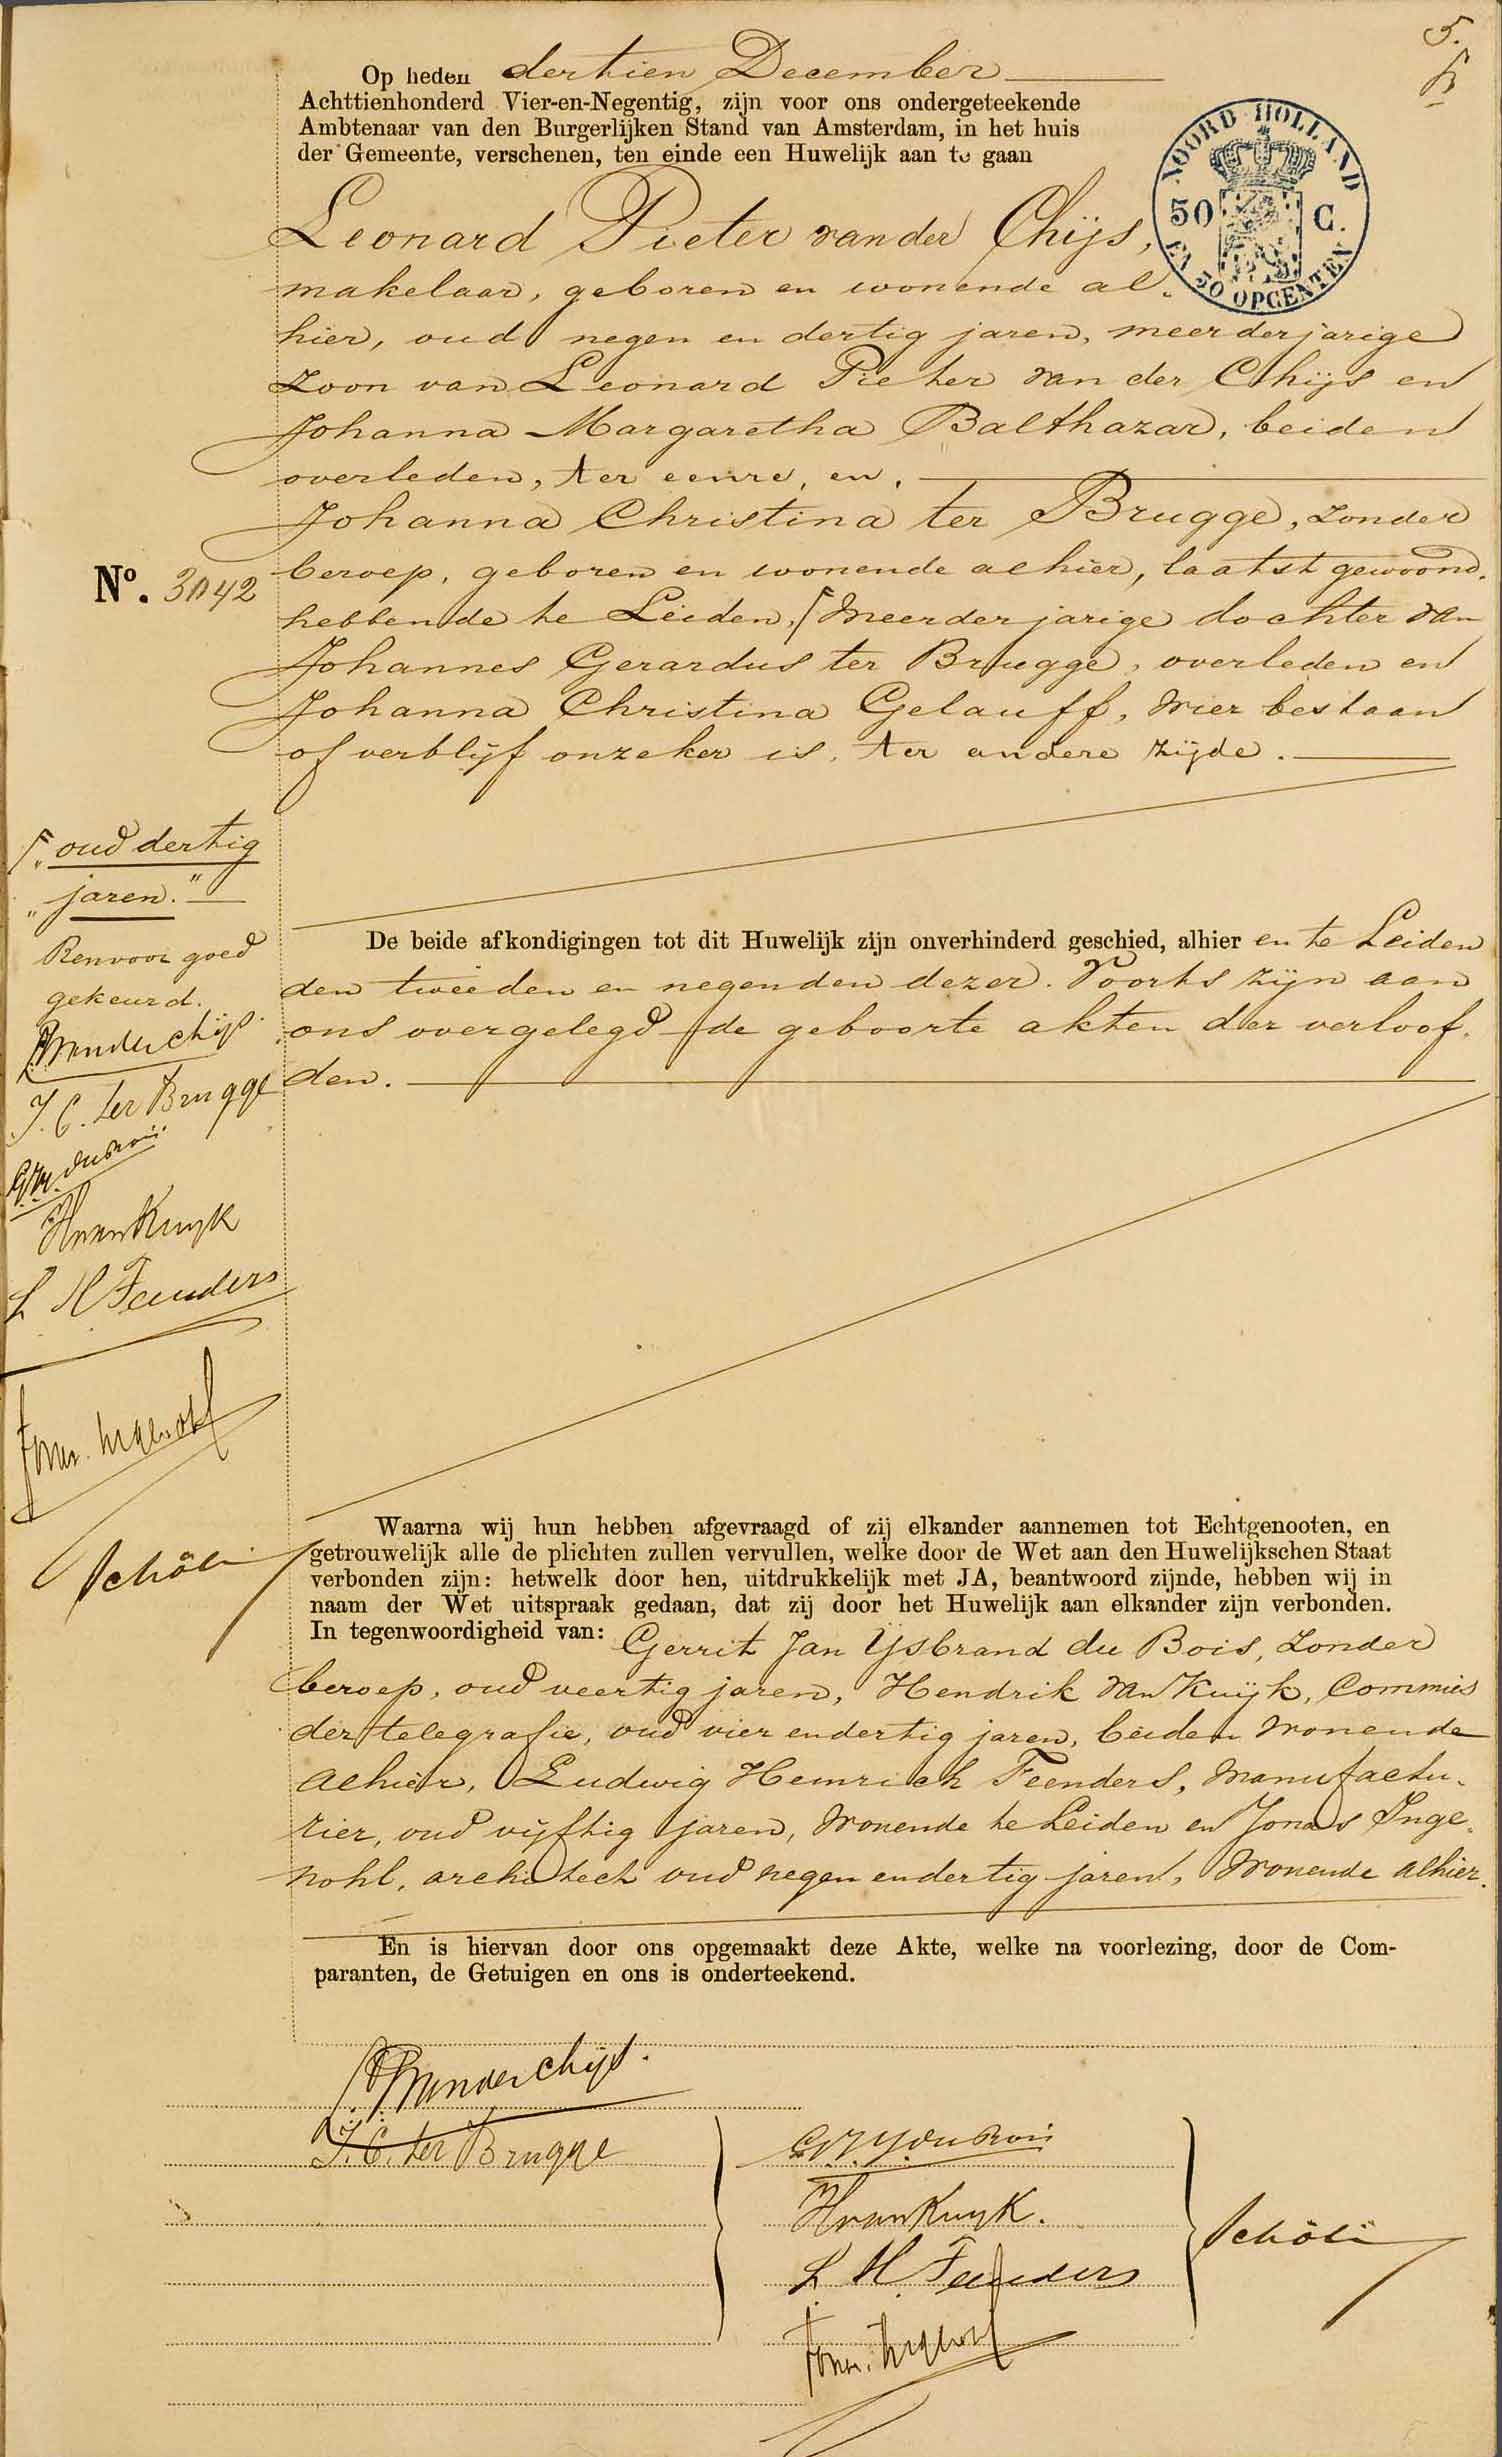 5.
Op heden dertien December
Achttienhonderd Vier-en-Negentig, zijn voor ons ondergeteekende
Ambtenaar van den Burgerlijken Stand van Amsterdam, in het huis
der Gemeente, verschenen, ten einde een Huwelijk aan te gaan
NOORD-HOLLAND
50 C.
EN 50 OPCENTEN
Leonard Pieter van der Chijs,
makelaar, geboren en wonende al-
hier, oud negen en dertig jaren, meerderjarige
zoon van Leonard Pieter van der Chijs en
Johanna Margaretha Balthazar, beiden
overleden, ter eenre, en,
Johanna Christina ter Brugge, zonder
beroep, geboren en wonende alhier, laatst gewoond
hebbende te Leiden, meerderjarige dochter van
Johannes Gerardus ter Brugge, overleden en
Johanna Christina Gelauff, wier bestaan
of verblijf onzeker is, ter andere zijde.
No. 3042
"oud dertig
"jaren."
Renvooi goed
gekeurd.
LPvanderchijs.
J. C. ter Brugge
du Bois
HvanKuyk
L H Feenders
De beide afkondigingen tot dit Huwelijk zijn onverhinderd geschied, alhier en te Leiden
den tweeden en negenden dezer. Voorts zijn aan
ons overgelegd de geboorte akten der verloof-
den.
Waarna wij hun hebben afgevraagd of zij elkander aannemen tot Echtgenooten, en
getrouwelijk alle de plichten zullen vervullen, welke door de Wet aan den Huwelijkschen Staat
verbonden zijn: hetwelk door hen, uitdrukkelijk met JA, beantwoord zijnde, hebben wij in
naam der Wet uitspraak gedaan, dat zij door het Huwelijk aan elkander zijn verbonden.
In tegenwoordigheid van: Gerrit Jan IJsbrand du Bois, zonder
beroep, oud veertig jaren, Hendrik van Kuijk, Commies
der telegrafie, oud vier en dertig jaren, beiden wonende
alhier, Ludwig Heinrich Feenders, manufactu-
rier, oud vijftig jaren, wonende te Leiden en Jonas Inge-
nohl, architect oud negen en dertig jaren, wonende alhier.
En is hiervan door ons opgemaakt deze Akte, welke na voorlezing, door de Com-
paranten, de Getuigen en ons is onderteekend.
LPvanderchijs.
J. C. ter Brugge
GJYduBois
HvanKuyk.
L. H. Feenders